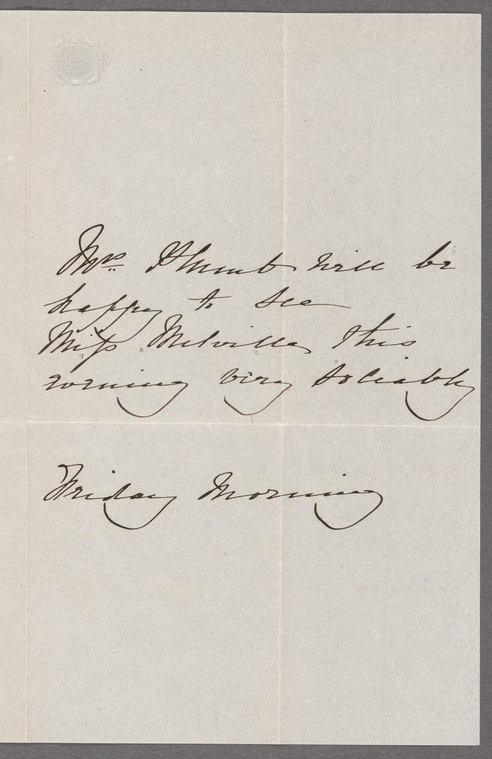 Mrs. Plumb will be
happy to see
Miss Melville, this
evening very sociably
Friday Morning